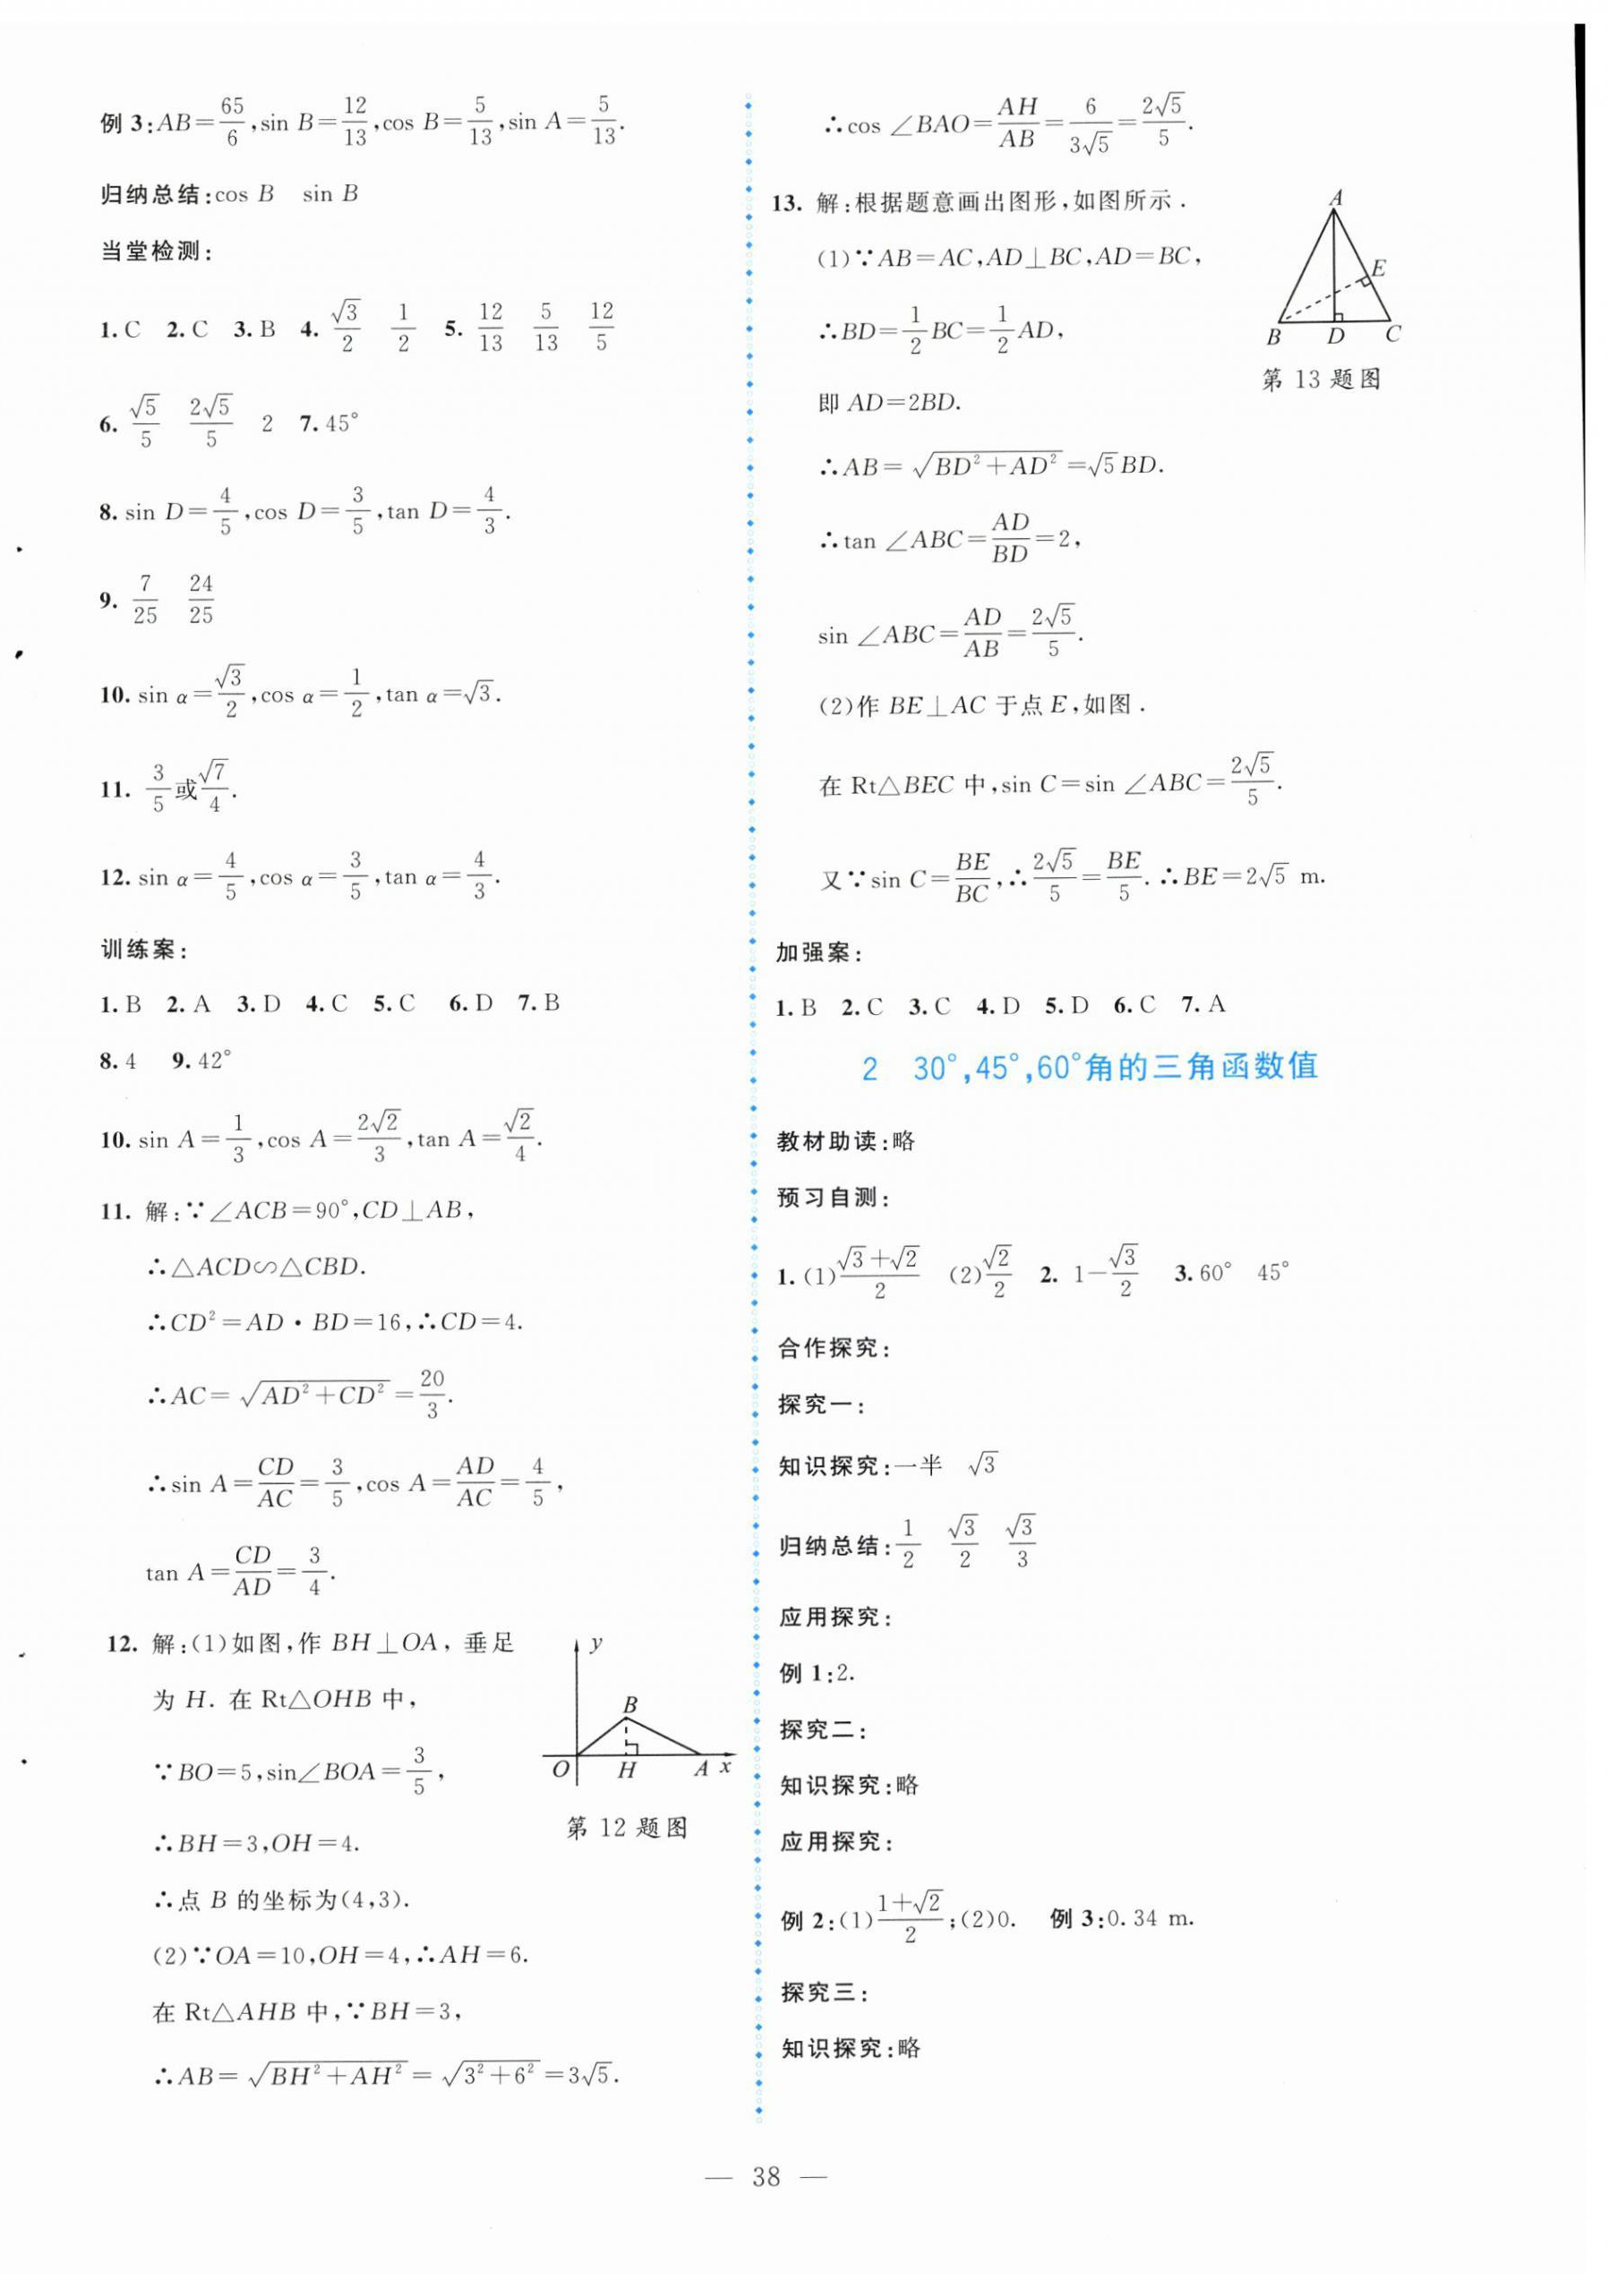 例 3:AB=65/6,sin B=12/13,cos B=5/13,sin A=5/13.
归纳总结:cos B  sin B
当堂检测:
1. C  2. C  3. B  4. √3/2  1/2  5. 12/13  5/13  12/5
6. √5/5  2√5/5  2  7. 45°
8. sin D=4/5,cos D=3/5,tan D=4/3.
9. 7/25  24/25
10. sin α=√3/2,cos α=1/2,tan α=√3.
11. 3/5或√7/4.
12. sin α=4/5,cos α=3/5,tan α=4/3.
训练案:
1. B  2. A  3. D  4. C  5. C  6. D  7. B
8. 4  9. 42°
10. sin A=1/3,cos A=2√2/3,tan A=√2/4.
11. 解:∵∠ACB=90°,CD⊥AB,
∴△ACD∽△CBD.
∴CD²=AD·BD=16,∴CD=4.
∴AC=√(AD²+CD²)=20/3.
∴sin A=CD/AC=3/5,cos A=AD/AC=4/5,
tan A=CD/AD=3/4.
12. 解:(1)如图,作 BH⊥OA, 垂足
为 H. 在 Rt△OHB 中,
∵BO=5,sin∠BOA=3/5,
∴BH=3,OH=4.
∴点 B 的坐标为(4,3).
y
B
O  H  A  x
第 12 题图
(2)∵OA=10,OH=4,∴AH=6.
在 Rt△AHB 中,∵BH=3,
∴AB=√(BH²+AH²)=√(3²+6²)=3√5.
∴cos ∠BAO=AH/AB=6/(3√5)=2√5/5.
13. 解:根据题意画出图形,如图所示.
(1)∵AB=AC,AD⊥BC,AD=BC,
∴BD=1/2BC=1/2AD,
即 AD=2BD.
A
E
B  D  C
第 13 题图
∴AB=√(BD²+AD²)=√5BD.
∴tan ∠ABC=AD/BD=2,
sin ∠ABC=AD/AB=2√5/5.
(2)作 BE⊥AC 于点 E,如图.
在 Rt△BEC 中,sin C=sin ∠ABC=2√5/5.
又∵sin C=BE/BC,∴2√5/5=BE/5.∴BE=2√5 m.
加强案:
1. B  2. C  3. C  4. D  5. D  6. C  7. A
2  30°,45°,60°角的三角函数值
教材助读:略
预习自测:
1. (1)(√3+√2)/2  (2)√2/2  2. 1−√3/2  3. 60°  45°
合作探究:
探究一:
知识探究:一半  √3
归纳总结:1/2  √3/2  √3/3
应用探究:
例 1:2.
探究二:
知识探究:略
应用探究:
例 2:(1)(1+√2)/2;(2)0.  例 3:0.34 m.
探究三:
知识探究:略
— 38 —